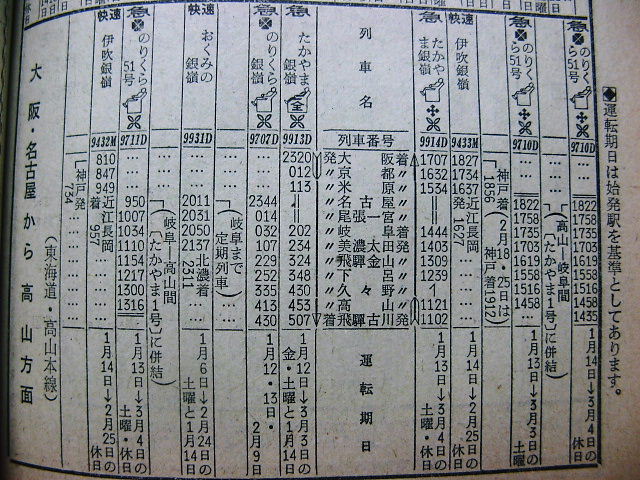 ◆運転期日は始発駅を基準としてあります。
急 のりくら51号 9710D
1822
1758
1735
1703
1619
1558
1516
1458
1435
1月14日→3月4日の休日
〔高山―岐阜間「たかやま1号」に併結〕
急 のりくら51号 9710D
1822
1758
1735
1703
1619
1558
1516
1458
1月13日→3月3日の土曜
〔神戸着(2月18・25日は神戸着1912) 1836
快速 伊吹銀嶺 9433M
1827
1734
1637
1634
近江長岡発 1627
1月14日→2月25日の休日
急 たかやま銀嶺 9914D
1707
1632
1534
1444
1403
1309
1239
1121
1102
1月13日→3月4日の土曜・休日
列車名
列車番号
発大阪着
〃京都〃
〃米原〃
〃名古屋〃
〃尾張一宮〃
着岐阜発
〃美濃太田〃
〃飛騨金山〃
〃下呂〃
〃久々野〃
〃高山〃
着飛騨古川発
運転期日
急 たかやま銀嶺 9913D
2320
012
113
202
234
325
348
430
453
507
1月12日→3月3日の金・土曜と1月14日
急 のりくら銀嶺 9707D
2344
014
032
107
229
252
330
413
430
1月12・13日・2月9日
〔岐阜まで定期列車〕
快速 おくみの銀嶺 9931D
2011
2031
2050
2137
北濃着 2311
1月6日→2月24日の土曜と1月14日
急 のりくら51号 9711D
950
1007
1034
1110
1154
1217
1300
1316
〔岐阜―高山間「たかやま1号」に併結〕
1月13日→3月4日の土曜・休日
快速 伊吹銀嶺 9432M
810
847
949
着近江長岡 957
〔神戸発 734
1月14日→2月25日の休日
大阪・名古屋から高山方面
(東海道・高山本線)